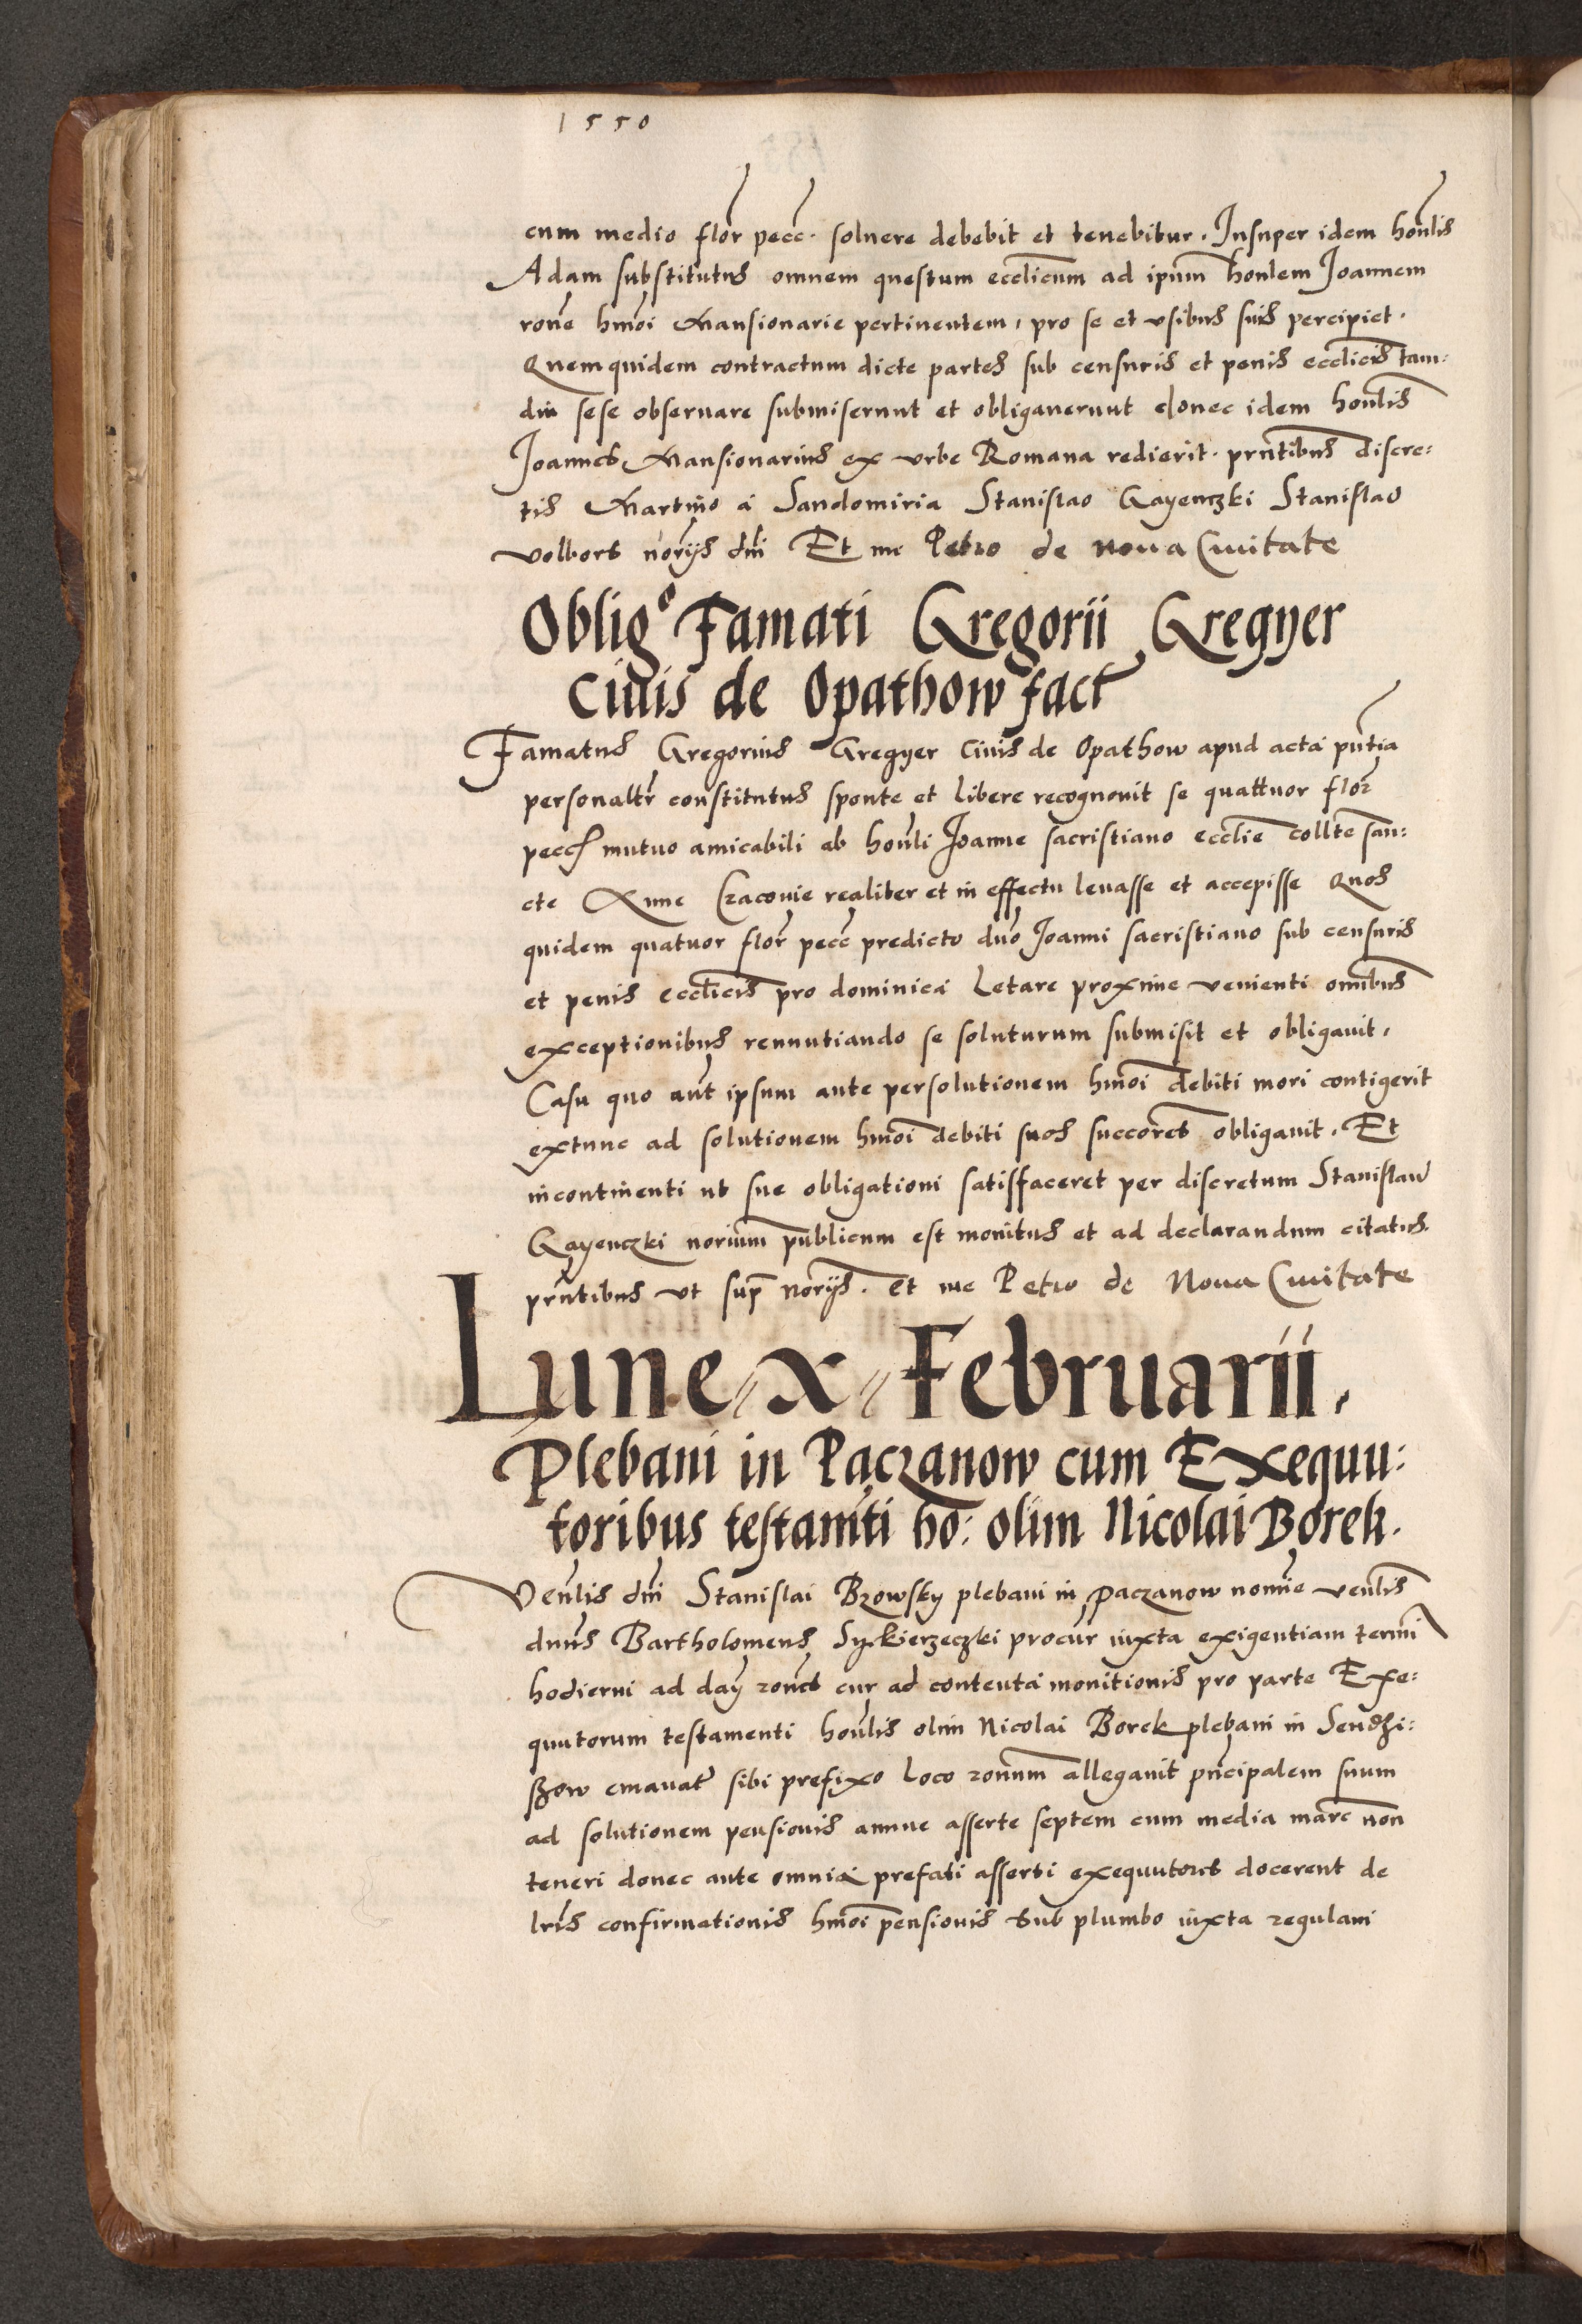 1550
cum medio flor pecc. soluere debebit et tenebitur. Insuper idem honlis
Adam substitutus omnem questum ecclicum ad ipum honlem Joannem
rone hmoi Mansionarie pertinentem, pro se et vsibus suis percipiet.
Quemquidem contractum dicte partes sub censuris et penis ecclicis tam:
diu sese obseruare submiserunt et obligauerunt donec idem honlis
Joannes Mansionarius ex vrbe Romana redierit. prntibus discre:
tis Martino a Sandomiria Stanislao Gayenczki Stanislao
volbors norijs dni Et me Petro de noua Ciuitate
Obligo Famati Gregorii Gregyer
Ciuis de Opathow fact
Famatus Gregorius Gregyer Ciuis de Opathow apud acta pntia
personaltr constitutus sponte et libere recognouit se quattuor flor
pecc mutuo amicabili ab honli Joanne sacristiano ecclie collte san:
cte Anne Cracouie realiter et in effectu leuasse et accepisse Quos
quidem quatuor flor pecc predicto dno Joanni sacristiano sub censuris
et penis ecclicis pro dominica Letare proxime venienti omnibus
exceptionibus renuntiando se soluturum submisit et obligauit.
Casu quo aut ipsum ante persolutionem hmoi debiti mori contigerit
extunc ad solutionem hmoi debiti suos succores obligauit. Et
incontinenti ut sue obligationi satisfaceret per discretum Stanislau
Gayenczki norium publicum est monitus et ad declarandum citatus.
prntibus vt sup norijs. et me Petro de Noua Ciuitate
Lune x Februarii.
Plebani in Paczanow cum Exequu:
toribus testamti ho: olim Nicolai Borek.
Venlis dni Stanislai Bzowsky plebani in Paczanow nomie venlis
dnus Bartholomeus procur iuxta exigentiam termi
hodierni ad rones cur ad contenta monitionis pro parte Exe:
quutorum testamenti honlis olim Nicolai Borek plebani in Sendzi:
szow emanat sibi prefixo loco ronum allegauit pncipalem suum
ad solutionem pensionis annue asserte septem cum media marc non
teneri donec ante omnia prefati asserti exequutores docerent de
lris confirmationis hmoi pensionis sub plumbo iuxta regulam